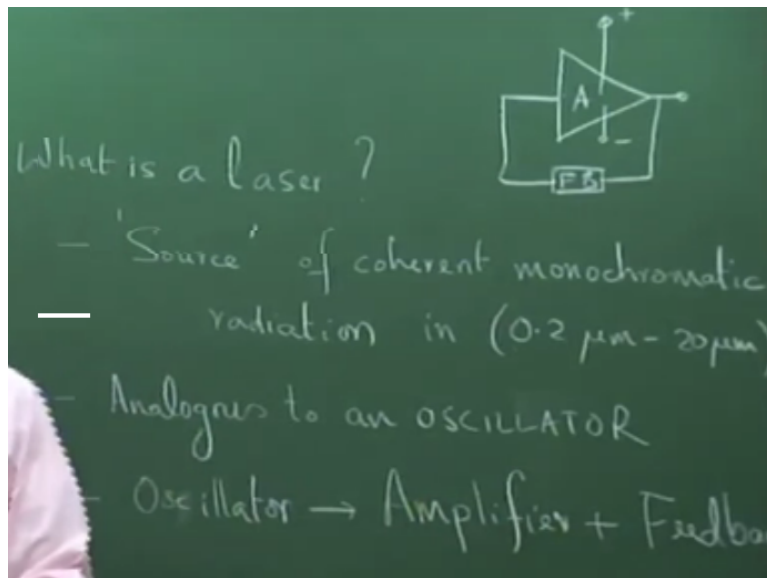 +
A
-
FB
What is a laser ?
- 'Source' of coherent monochromatic
radiation in (0.2 μm - 20 μm)
- Analogus to an OSCILLATOR
- Oscillator → Amplifier + Feedba